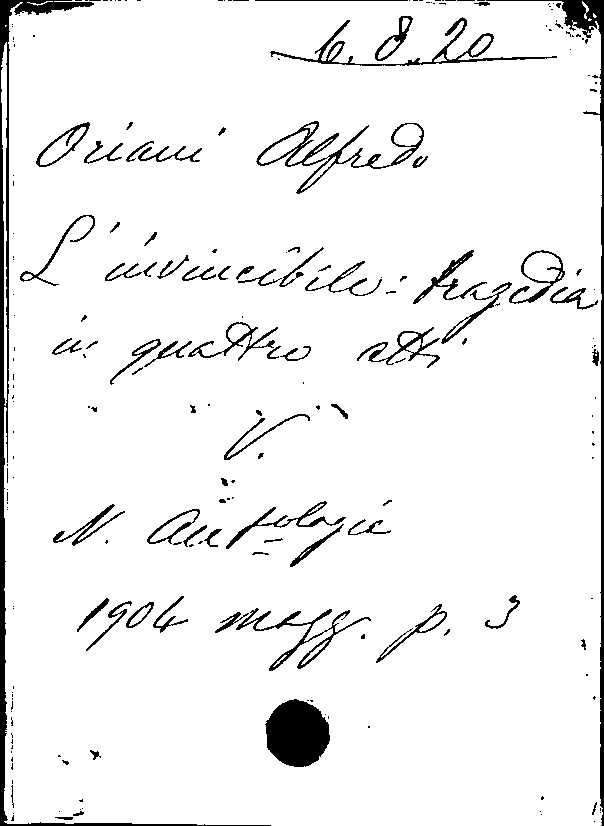 6.8.20
Oriani Alfredo
L'invincibile: tragedia
in quattro atti
V.
N. Antologia
1904 magg. p. 3